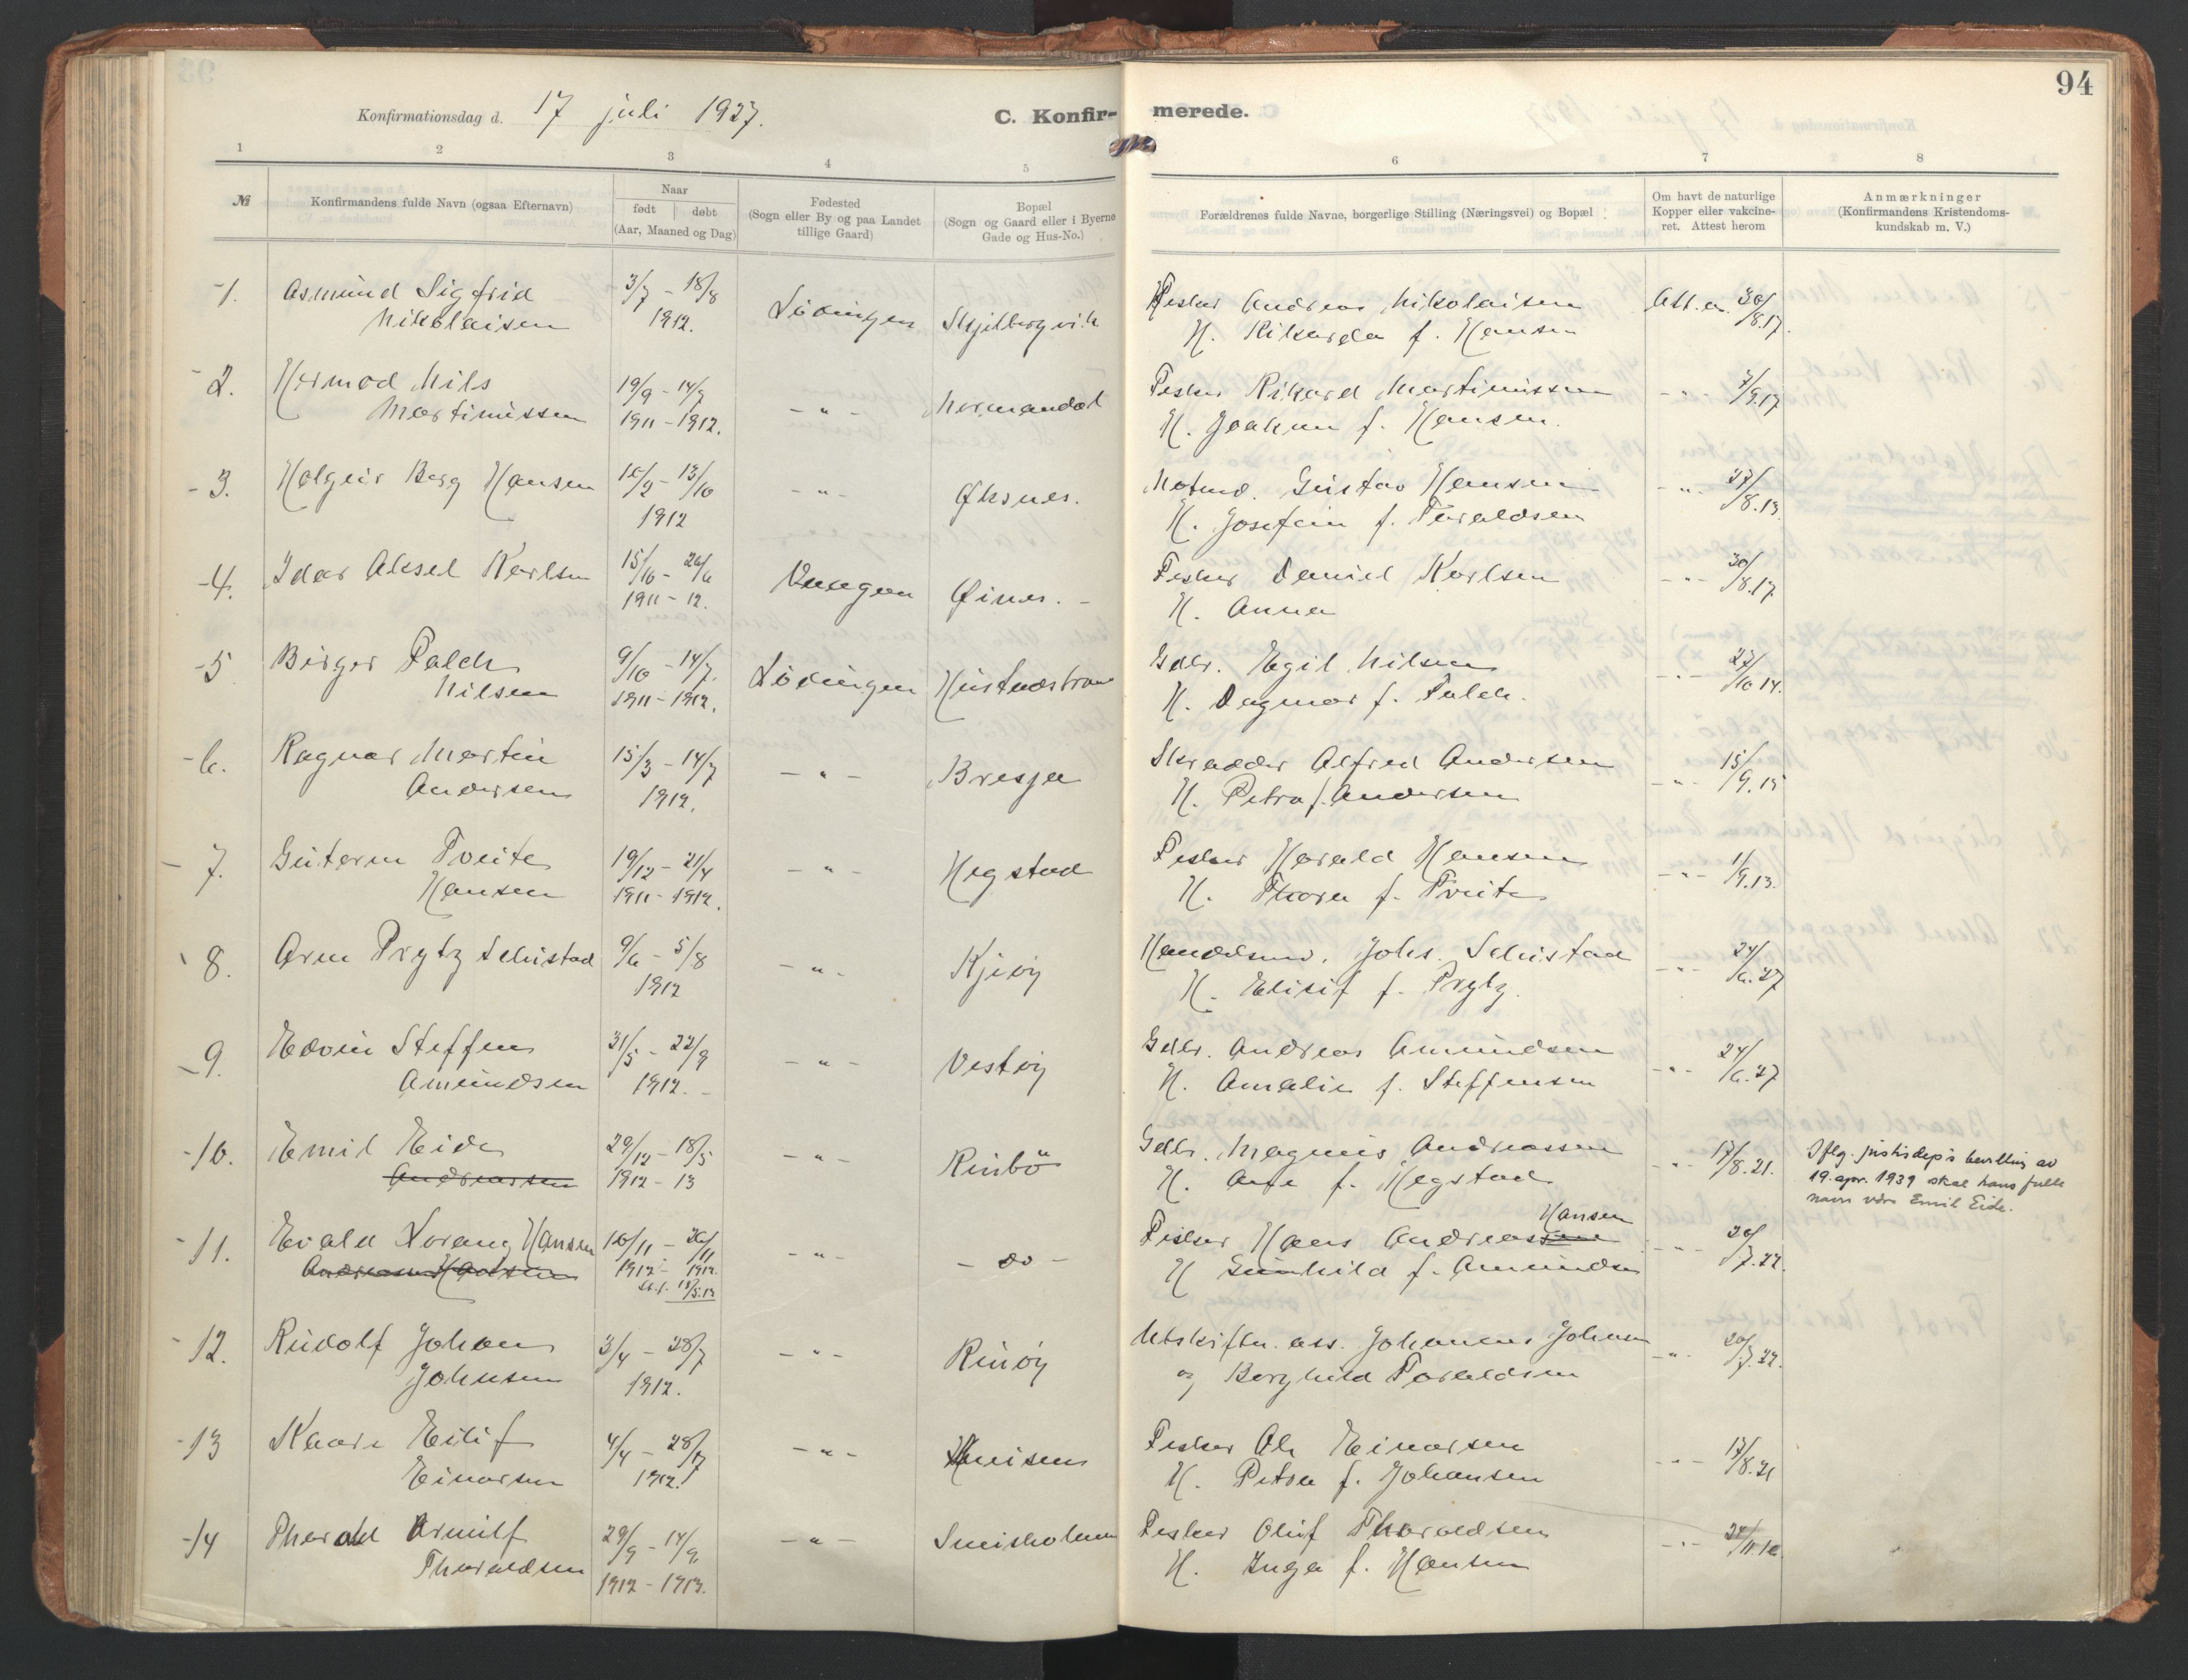 94
Konfirmationsdag d. 17 juli 1927.
C. Konfir-
merede.
1 2 3 4 5 6 7 8
№
Konfirmandens fulde Navn (ogsaa Efternavn)
Naar
født | døbt
(Aar, Maaned og Dag)
Fødested
(Sogn eller By og paa Landet
tillige Gaard)
Bopæl
(Sogn og Gaard eller i Byerne
Gade og Hus-No.)
Forældrenes fulde Navne, borgerlige Stilling (Næringsvei) og Bopæl
Om havt de naturlige
Kopper eller vakcine-
ret. Attest herom
Anmærkninger
(Konfirmandens Kristendoms-
kundskab m. V.)
1. Asmund Sigfrid 3/7 - 18/8 Lödingen Fisker Andreas Nikolaisen Att. av 30/8.17.
Nikolaisen 1912. H. Rikarda f. Hansen
2. Hermod Nils 19/9 - 14/7 - " - Normandal Fisker Rikard Martinussen - " - 7/9.17
Martinussen 1911 - 1912. H. Joakim f. Hansen.
3. Holgeir Berg Hansen 10/2 - 13/10 - " - Øksnes. Gustav Hansen - " - 27/8.13
1912 H. Josefine f. Taraldsen
4. Idar Aksel Karlsen 15/10 - 26/6 Øines. - Fisker Daniel Karlsen - " - 30/8.17
1911 - 12. H. Anna
5 Birger Falch 9/10 - 14/7. Lödingen Gdbr. Egil Nilsen - " - 27/10 14.
Nilsen 1911 - 1912. H. Dagmar f. Falch.
6. Ragnar Martin 15/3 - 14/7 - " - Bresja Skrædder Alfred Andersen - " - 15/9.15
Andersen 1912. H. Petra f. Andersen
7. Guterm Tveite 19/12 - 21/4 - " - Hegstad Fisker Harald Hansen - " - 1/9.13.
Hansen 1911 - 1912. H. Thora f. Tveite
8. Arne Prytz Schistad 9/6 - 5/8 - " - Kjøy Handelsmd. Johs. Schistad - " - 24/6.27
1912 H. Elisif f. Prytz.
9. Edvin Steffen 31/5 - 22/9 - " - Vestøy Gdbr. Andreas Amundsen - " - 24/6.27
Amundsen 1912. - H. Amalie f. Steffensen
10. Emil Eide 29/12 - 18/5 - " - Rinbö Gdbr. Magnus Andreassen - " - 17/8.21. Iflg. justisdep's bevilling av
Andreassen 1912 - 13 H. Ane f. Hegstad 19. apr. 1939 skal hans fulle
navn være Emil Eide.
Hansen
11. Evald Norang Hansen 10/11 - 26/11 - " - - do - Fisker Hans Andreassen - " - 20/7.22.
Andreassen 1912 - 1912. H Gunhild f. Amundsen
18/5.13
12. Rudolf Johan 3/4 - 28/7 - " - Rinøy Utskiftn. ass. Johannes Johnsen - " - 20/7.22.
Johnsen 1912. og Borghild Taraldsen
13 Kaare Eilif 4/4 - 28/7 - " - Fisker Ole Einarsen - " - 17/8.21
Einarsen 1912. H. Petra f. Johansen
14 Tharald Arnulf 29/9 - 14/9. - " - Fisker Oluf Tharaldsen - " -
Tharaldsen 1912 - 1913. H. Inga f. Hansen